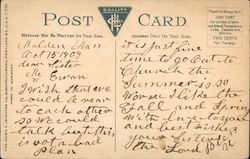 QUALITY
POST CARD
Message May Be Written On This Side.
Address Only On This Side.
Place the Stamp Here
ONE CENT
For United States
and Island Possessions
Cuba, Canada and
Mexico
TWO CENTS
For Foreign
Malden Mass
Oct 15 1909
Dear Sister
Mc Ewan
I wish that we
could be near
to each other
so we could
talk but this
is not a bad
plan
it is just fine
time to go out to
Church the
Summer is so
Worse I like the
Fall and
With love to you
and best wishes
your Sister in
the Lord